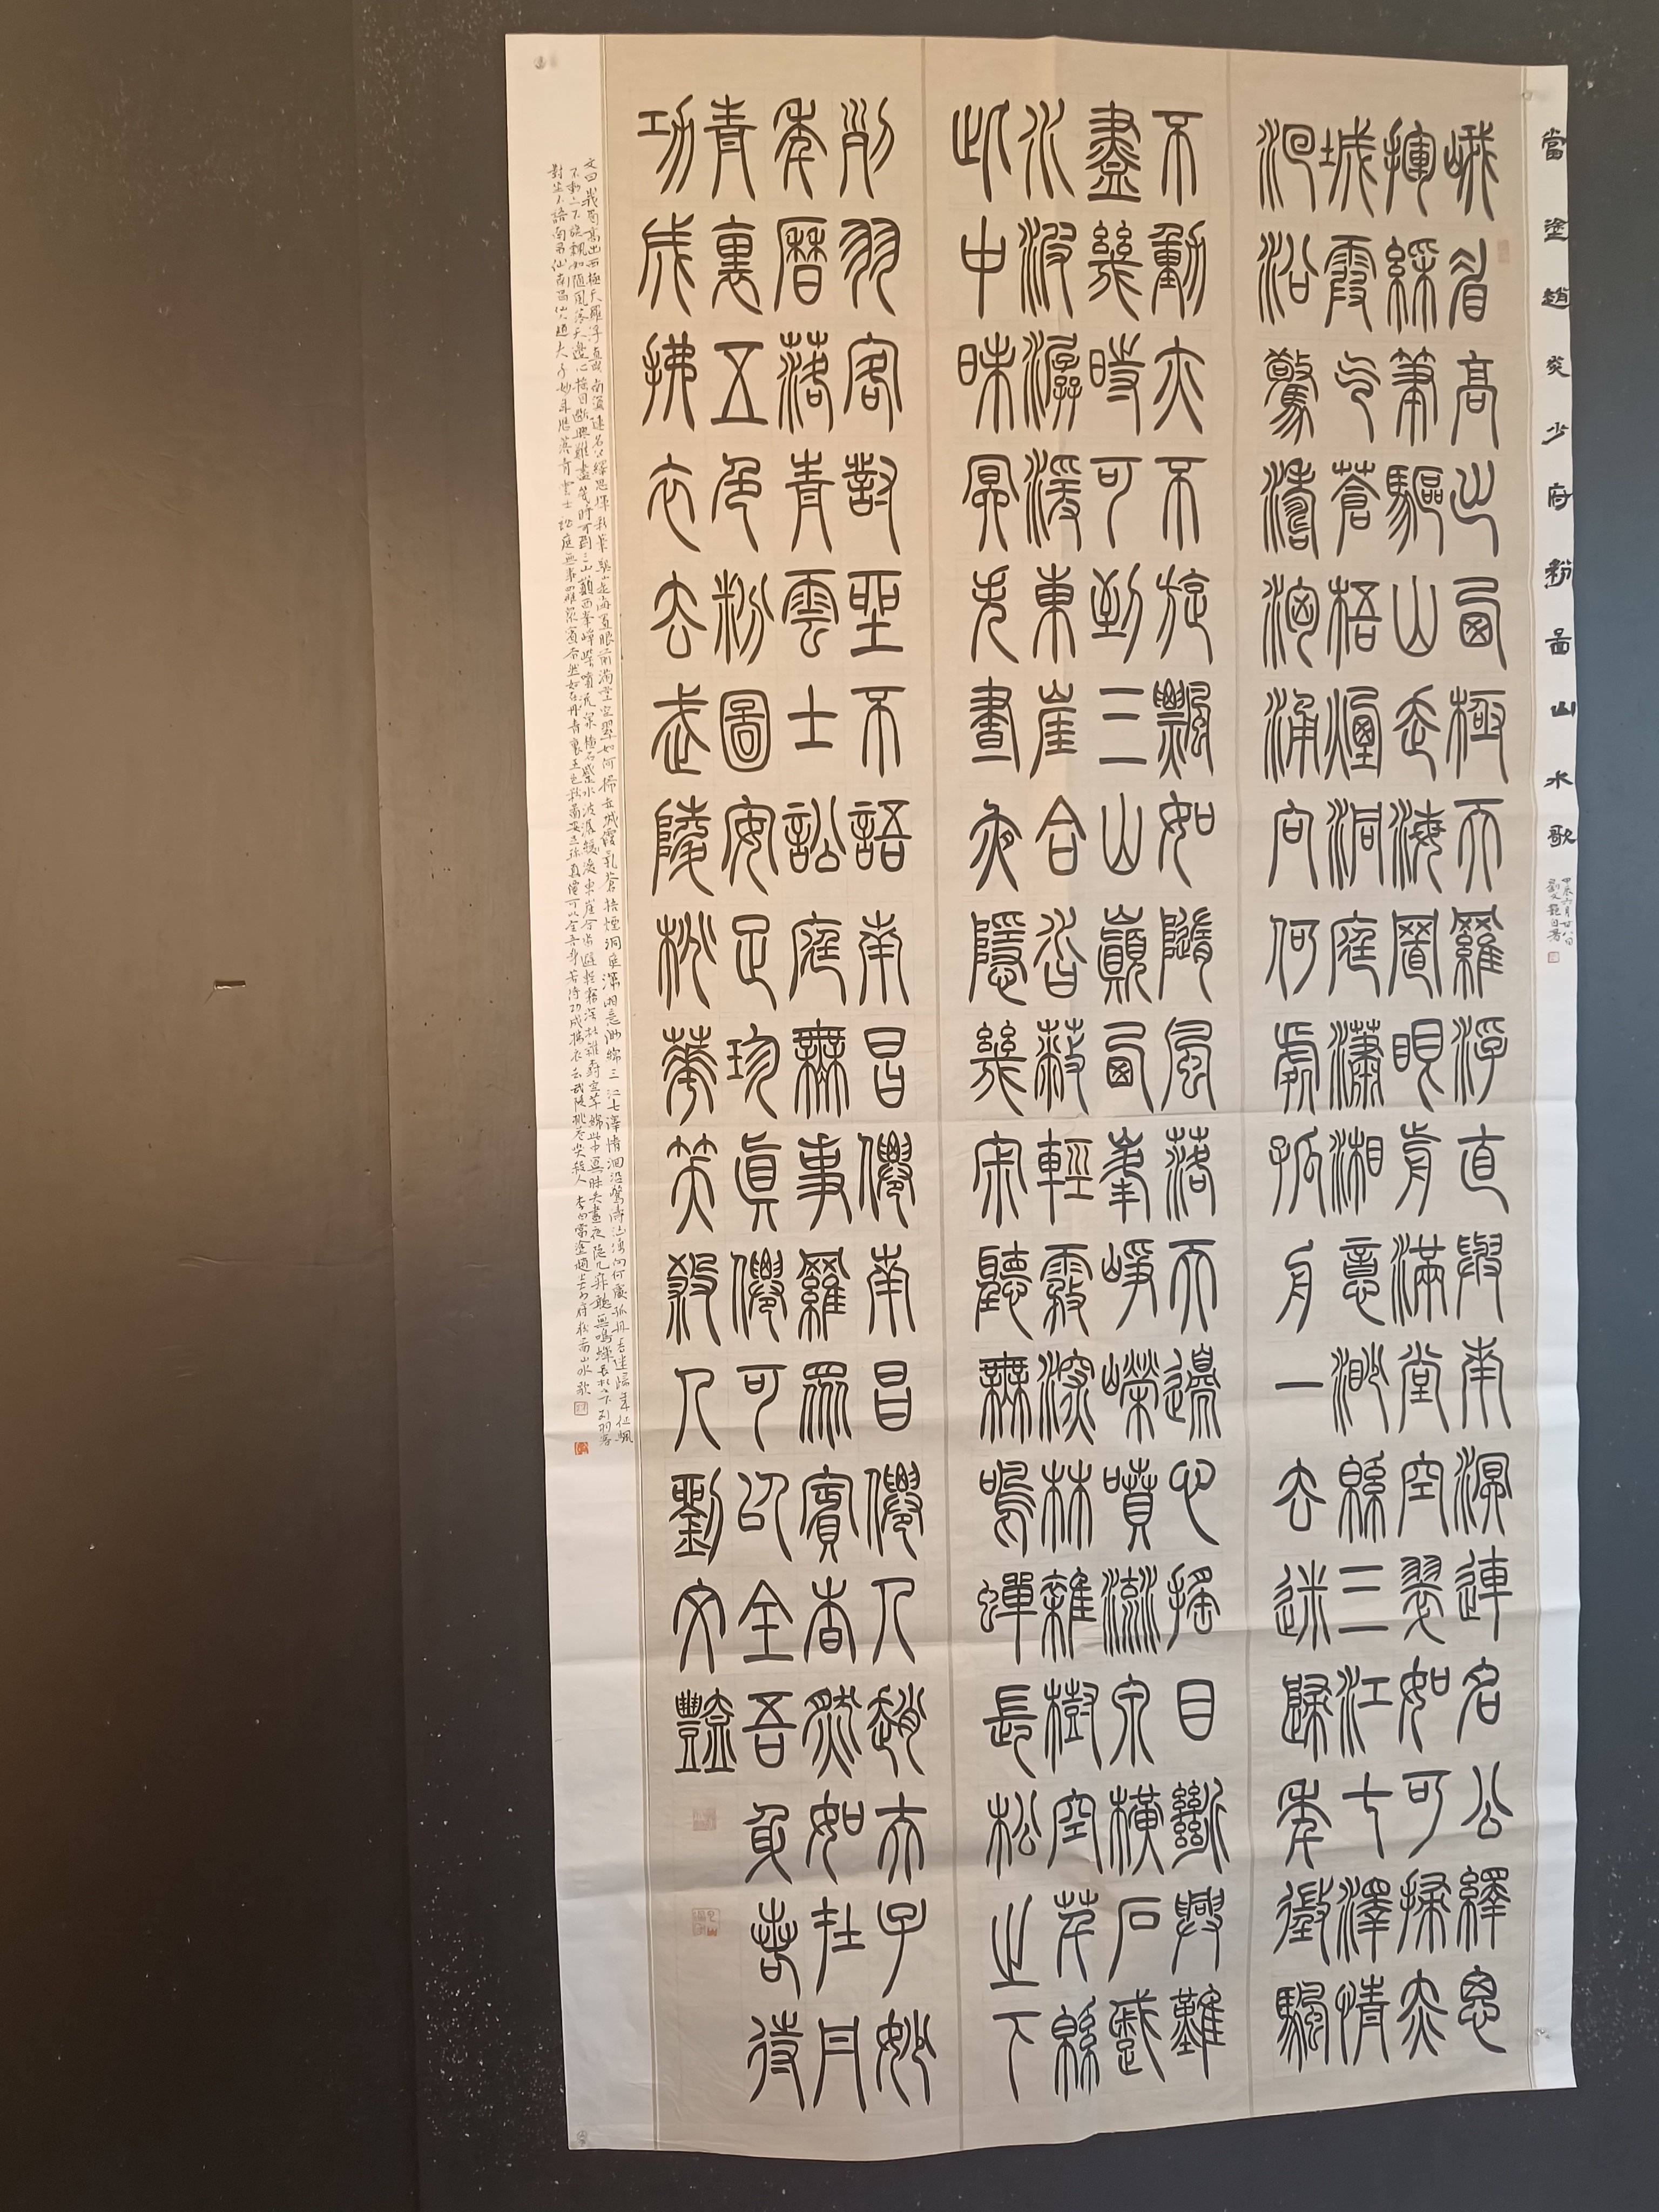 當塗趙炎少府粉圖山水歌
甲辰六月廿八日
劉文艷自署
峨眉高出西極天羅浮直與南溟連名公繹思
揮綵筆驅山走海置眼前滿堂空翠如可掃赤
城霞气蒼梧煙洞庭瀟湘意渺緜三江七澤情
洄沿驚濤洶涌向何處孤舟一去迷歸年徵颿
不動亦不旋飄如隨風落天邊心搖目斷興難
盡幾時可到三山巔西峯崢嶸噴流泉橫石蹙
水波潺湲東崖合沓蔽輕霧深林雜樹空芊緜
此中昧冥失晝夜隱几寂聽無鳴蟬長松之下
列羽客對坐不語南昌僊南昌僊人趙夫子妙
年曆落青雲士訟庭無事羅眾賓杳然如在丹
青裏五色粉圖安足珍真僊可以全吾身若待
功成拂衣去武陵桃華笑殺人劉文艷
文曰峨眉高出西極天羅浮直與南溟連名公繹思揮彩筆驅山走海置眼前滿堂空翠如何掃赤城霞氣蒼梧煙洞庭瀟湘意渺綿三江七澤情洄沿驚濤洶湧向何處孤舟一去迷歸年征颿
不動亦不旋飄如隨風落天邊心搖目斷興難盡幾時可到三山巔西峯崢嶸噴流泉橫石蹙水波潺湲東崖合沓蔽輕霧深林雜樹空芊綿此中冥昧失晝夜隱几寂聽無鳴蟬長松之下列羽客
對坐不語南昌仙南昌仙人趙夫子妙年歷落青雲士訟庭無事羅眾賓杳然如在丹青裏五色粉圖安足珍真僊可以全吾身若待功成拂衣去武陵桃花笑殺人 李白當塗趙炎少府粉圖山水歌